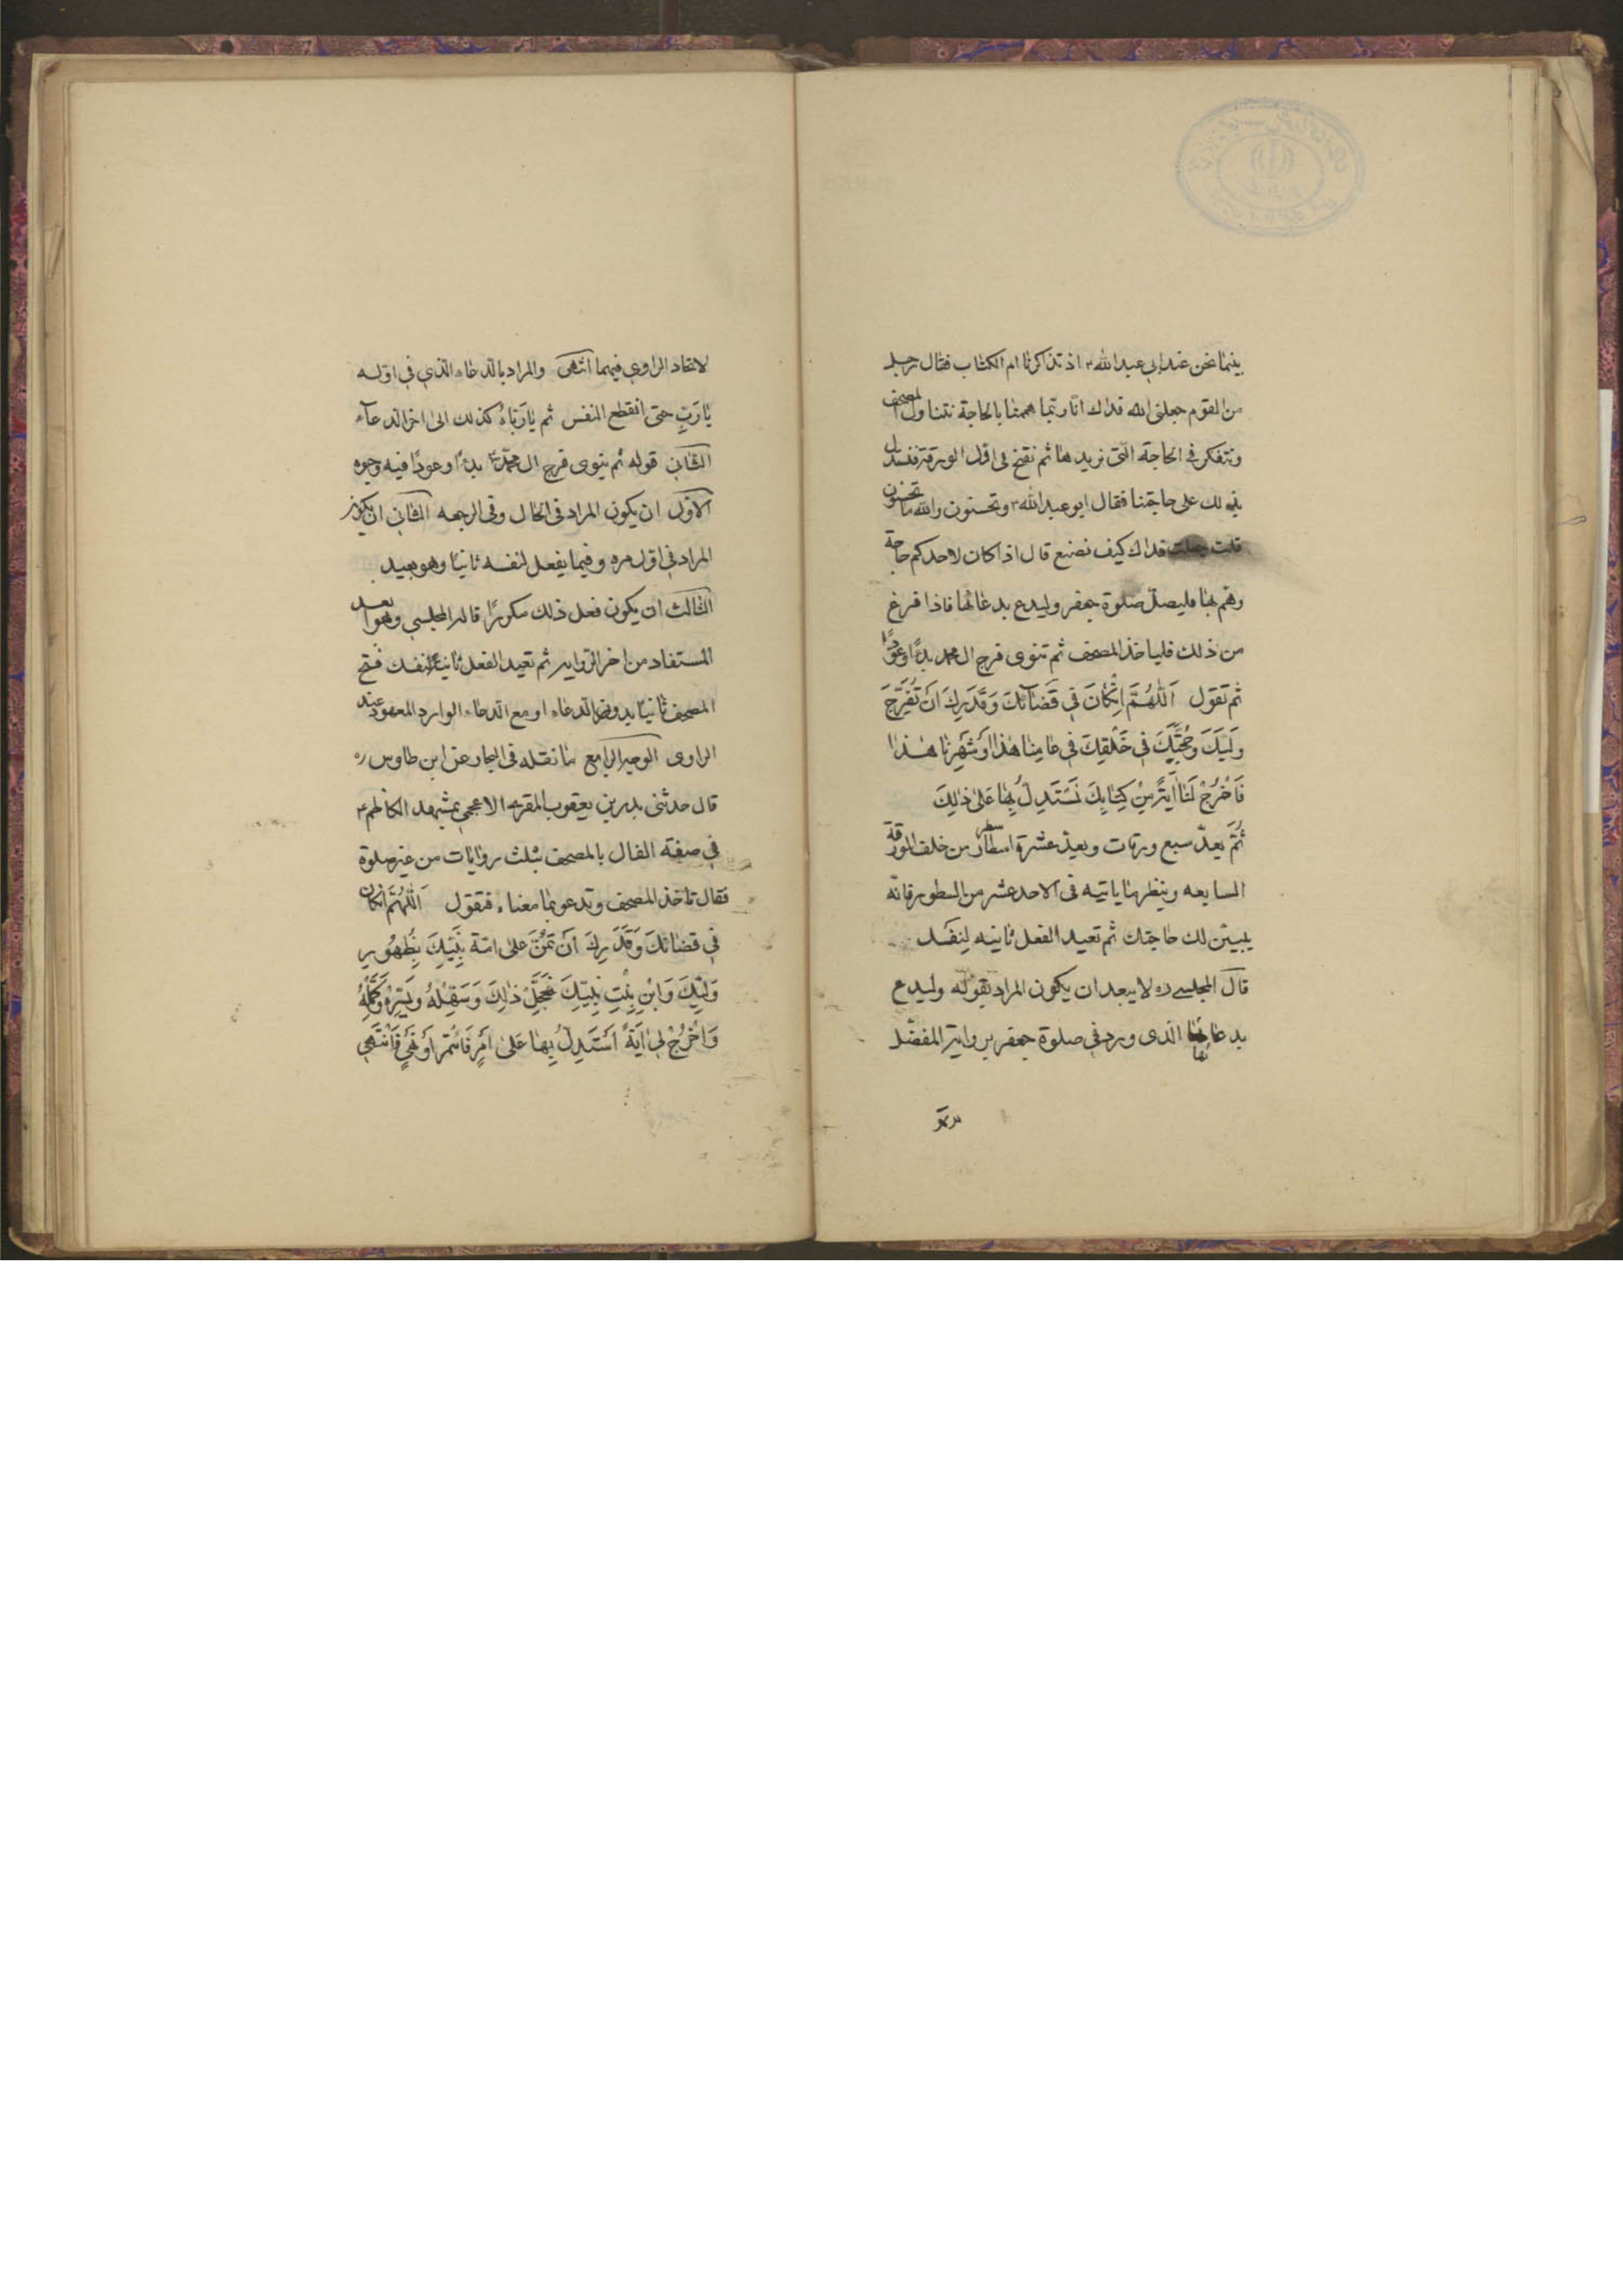 بينما نحن عند ابي عبد الله ع اذ تذاكرنا ام الكتاب فقال رجل
من القوم جعلنى الله فداك انا ربما هممنا بالحاجة نتناول المصحف
ونتفكر في الحاجة التى نريدها ثم نفتح فى اول الورقة فنستدل
بذلك على حاجتنا فقال ابو عبد الله ع وتحسنون والله ما تحسنون
قلت جعلت فداك كيف نصنع قال اذا كان لاحدكم حاجة
وهم بها فليصل صلوة جعفر وليدع بدعائها فاذا فرغ
من ذلك فلياخذ المصحف ثم تنوى فرج ال محمد بدءًا وعودًا
ثم تقول اَللّهُمَّ اِنْ كانَ فى قَضآئِكَ وَقَدَرِكَ اَنْ تُفَرِّجَ
وَلِيِّكَ وَحُجَّتِكَ فى خَلْقِكَ فى عامِنا هذا اَوْ شَهْرِنا هذا
فَاَخْرِجْ لَنا اٰيَةً مِنْ كِتابِكَ نَسْتَدِلُّ بِها عَلى ذٰلِكَ
ثُمَّ يعدّ سبع ورقات ويعدّ عشرة اسطار من خلف الورقة
السابعه وينظر ما ياتيه فى الاحد عشر من السطور فانّه
يبيّن لك حاجتك ثم تعيد الفعل ثانيه لِنفسك
قال المجلسى ره لا يبعد ان يكون المراد بقوله وليدع
بدعائها الذى ورد فى صلوة جعفر برواية المفضّل
لاتحاد الراوى فيهما انتهى والمراد بالدعاء الذى فى اوله
يا رَبِّ حتى انقطع النفس ثم يا رَبّاهُ كذلك الى اخر الدعآء
الثانى قوله ثم ينوى فرج ال محمّد ع بدءًا وعودًا فيه وجوه
الاول ان يكون المراد فى الحال وفى الرجعه الثانى ان يكون
المراد فى اول مره وفيما يفعل لنفسه ثانيًا وهو بعيد
الثالث ان يكون فعل ذلك مكررًا قاله المجلسى وهو ابعد
المستفاد من اخر الرواية ثم تعيد الفعل ثانيًا لنفسك فتح
المصحف ثانيًا بدون الدعاء او مع الدعاء الوارد المعهود عند
الراوى الوجه الرابع ما نقله فى البحار عن ابن طاوس ره
قال حدثنى بدر بن يعقوب المقرى الاعجمى بمشهد الكاظم ع
فى صفة الفال بالمصحف بثلث روايات من غير صلوة
فقال تاخذ المصحف وتدعو بما معناه فتقول اَللّهُمَّ اِنْ كانَ
فى قضائكَ وَقَدَرِكَ اَنْ تَمُنَّ عَلى امّة نَبِيِّكَ بِظُهُورِ
وَلِيِّكَ وَابْنِ بِنْتِ نَبِيِّكَ فَعَجِّلْ ذٰلِكَ وَسَهِّلْهُ وَيَسِّرْهُ وَكَمِّلْهُ
وَاَخْرِجْ لى اٰيَةً اَسْتَدِلُّ بِها عَلى اَمْرٍ فَائْتَمِرُ اَوْ نَهْىٍ فَاَنْتَهى